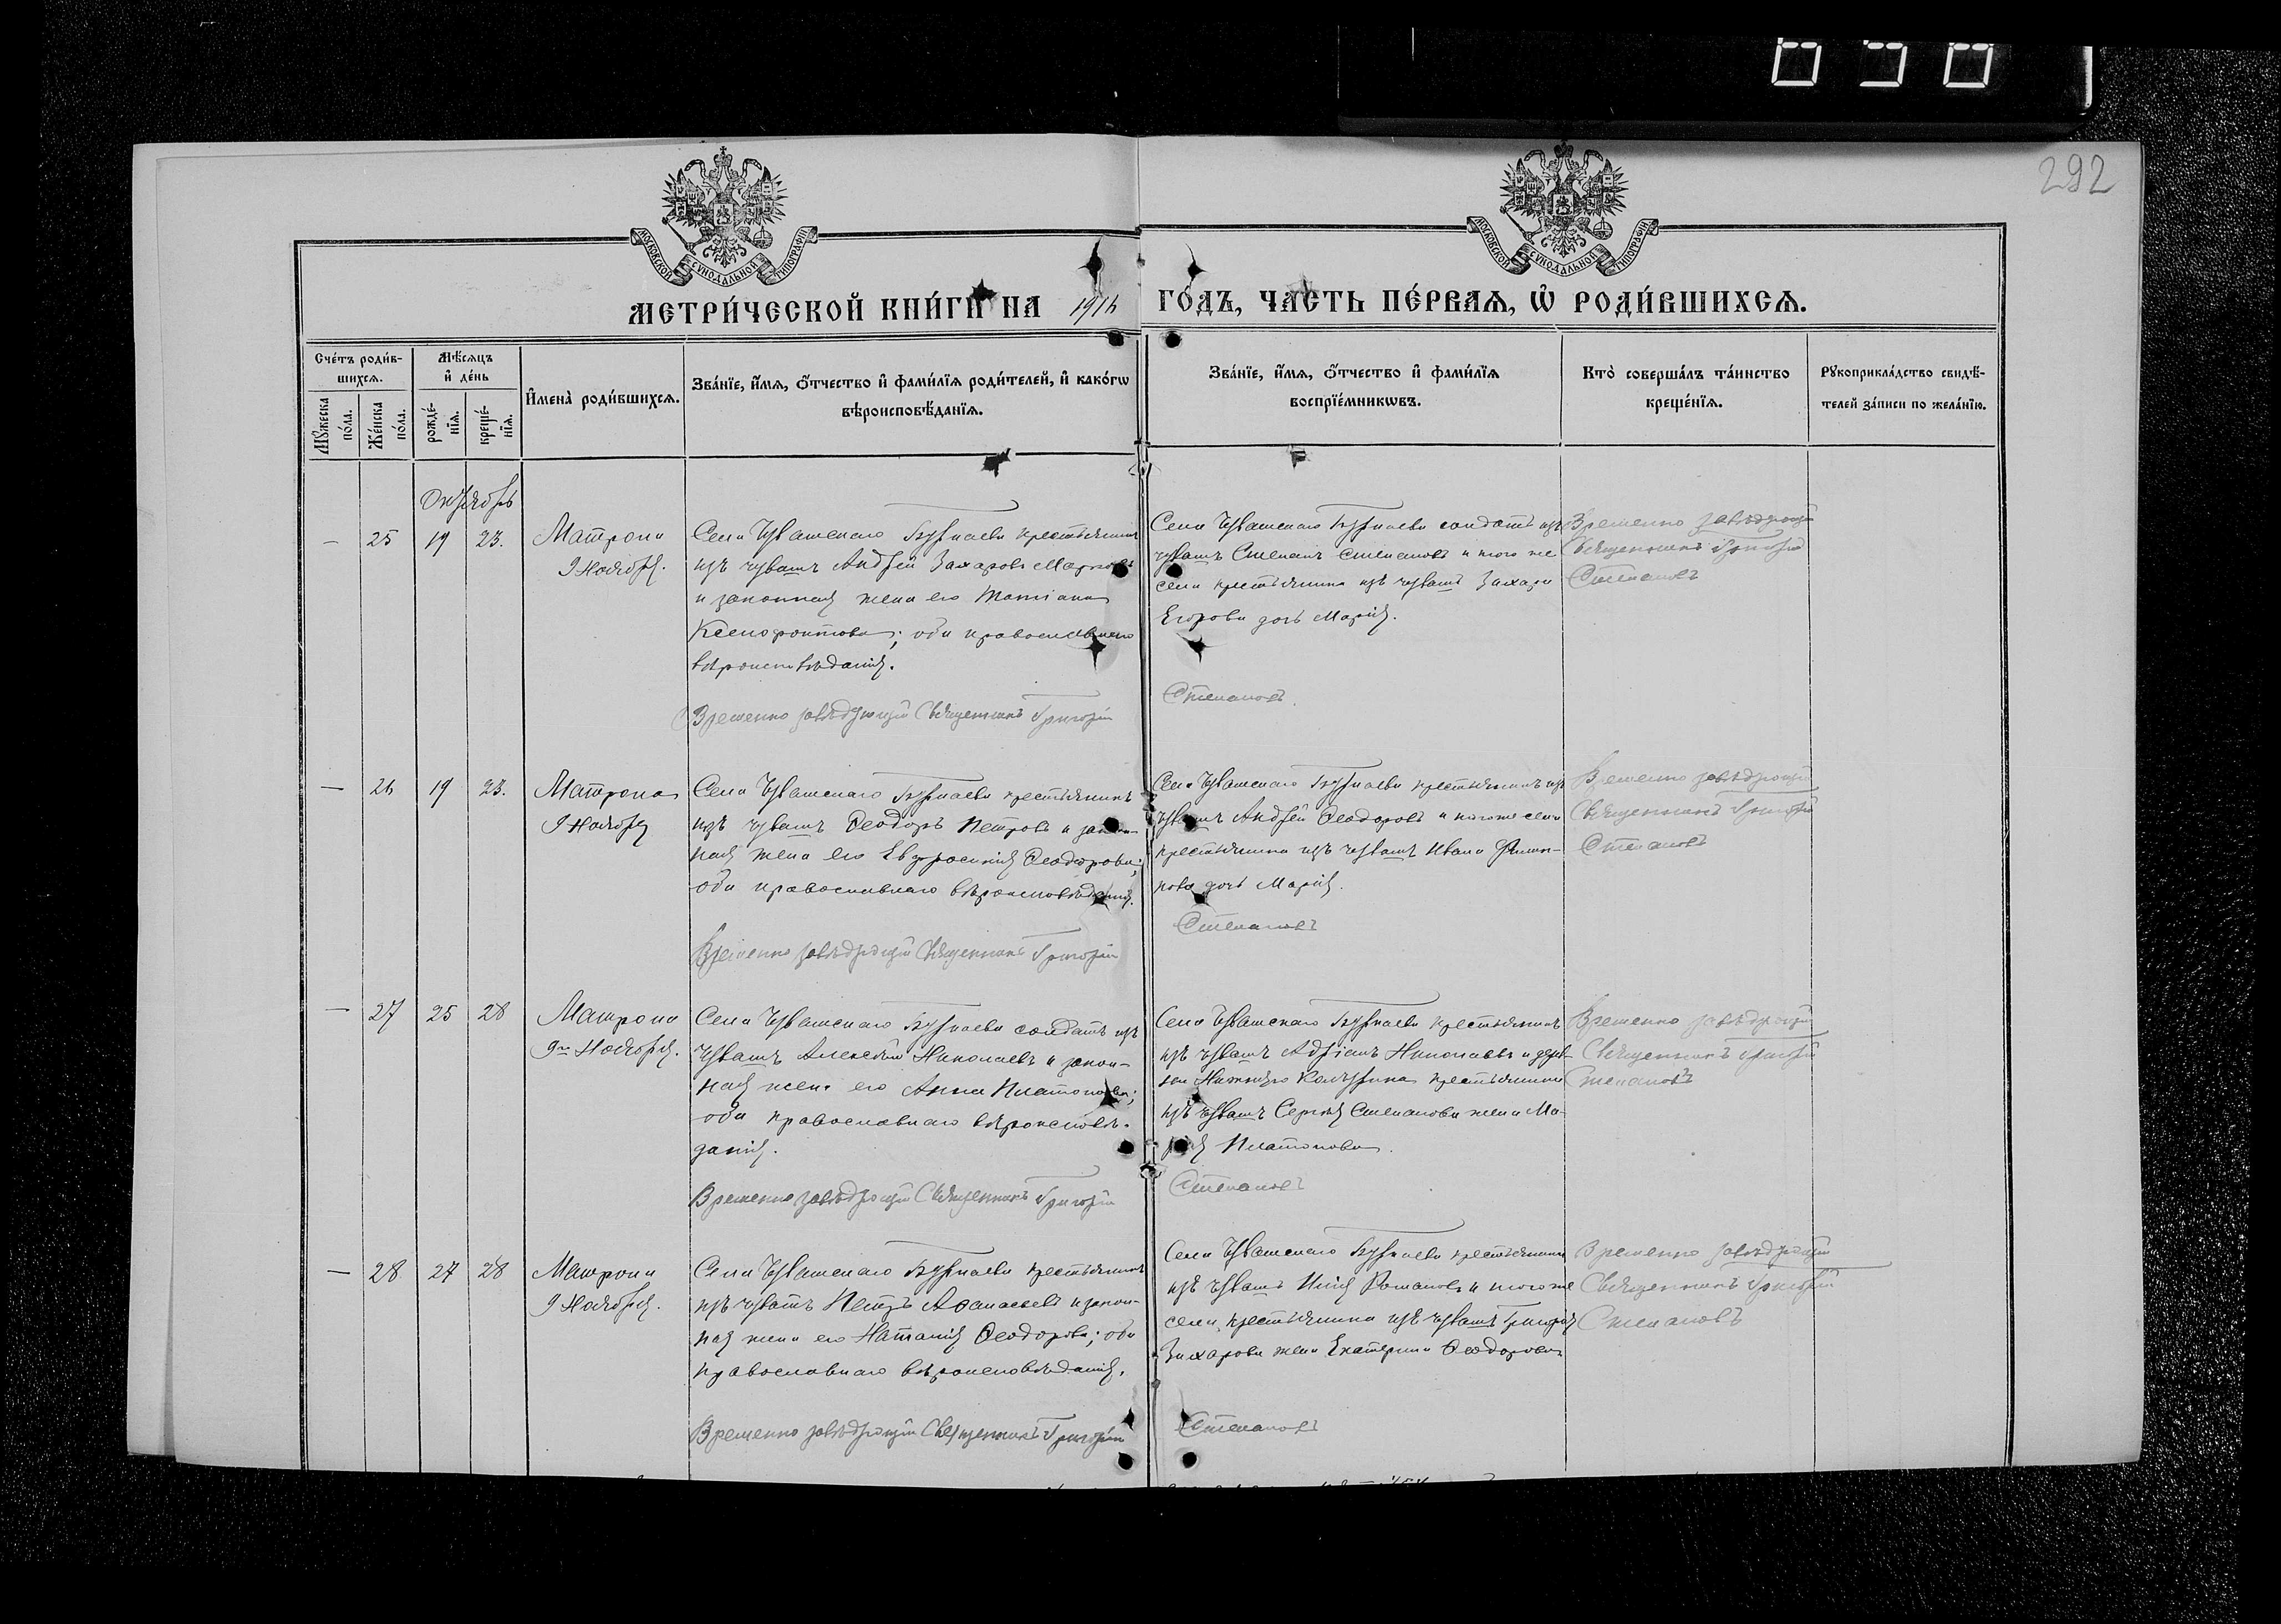 292
МОСКОВСКОЙ СУНОДАЛЬНОЙ ТИПОГРАФІИ
МОСКОВСКОЙ СУНОДАЛЬНОЙ ТИПОГРАФІИ
МЕТРИ́ЧЕСКОЙ КНИ́ГИ НА 191 ГО́ДЪ, ЧА́СТЬ ПЕ́РВАѦ, Ѡ҆ РОДИ́ВШИХСѦ.
Сче́тъ роди́в-
шихсѧ.
Мѣ́сѧцъ
и҆ де́нь
Мꙋ́жеска
по́ла.
Же́нска
по́ла.
рожде́-
нїѧ.
креще́-
нїѧ.
И҆мена̀ роди́вшихсѧ.
Зва́нїе, и҆́мѧ, ѻ҆́тчество и҆ фами́лїѧ роди́телей, и҆ како́гѡ
вѣроисповѣ́данїѧ.
Зва́нїе, и҆́мѧ, ѻ҆́тчество и҆ фами́лїѧ
воспрїе́мникѡвъ.
Кто̀ соверша́лъ та́инство
креще́нїѧ.
Рꙋкоприкла́дство свидѣ́-
телей за́писи по жела́нїю.
Октябрь
— 25 19 23.
Матрона
9 Ноября.
Села Чувашскаго Бурнаева крестьянинъ
изъ чувашъ Андрей Захаровъ Марковъ
и законная жена его Татіана
Ксенофонтова; оба православнаго
вѣроисповѣданія.
Временно завѣдующій Священникъ Григорій
Села Чувашскаго Бурнаева солдатъ изъ
чувашъ Степанъ Степановъ и того же
села крестьянина изъ чувашъ Захара
Егорова дочь Марія.
Степановъ.
Временно завѣдующій
Священникъ Григорій
Степановъ
— 26 19 23.
Матрона
9 Ноября
Села Чувашскаго Бурнаева крестьянинъ
изъ чувашъ Ѳеодоръ Петровъ и закон-
ная жена его Евфросинія Ѳеодорова;
оба православнаго вѣроисповѣданія.
Временно завѣдующій Священникъ Григорій
Села Чувашскаго Бурнаева крестьянинъ изъ
чувашъ Андрей Ѳеодоровъ и того же села
крестьянина изъ чувашъ Ивана Филип-
пова дочь Марія.
Степановъ
Временно завѣдующій
Священникъ Григорій
Степановъ
— 27 25 28
Матрона
9го Ноября.
Села Чувашскаго Бурнаева солдатъ изъ
чувашъ Алексѣй Николаевъ и закон-
ная жена его Анна Платонова;
оба православнаго вѣроисповѣ-
данія.
Временно завѣдующій Священникъ Григорій
Села Чувашскаго Бурнаева крестьянинъ
изъ чувашъ Адріанъ Николаевъ и дерев-
ни крестьянина
изъ чувашъ Сергѣя Степанова жена Ма-
рія Платонова.
Степановъ
Временно завѣдующій
Священникъ Григорій
Степановъ
— 28 27 28
Матрона
9 Ноября.
Села Чувашскаго Бурнаева крестьянинъ
изъ чувашъ Петръ Аѳанасьевъ и закон-
ная жена его Наталія Ѳеодорова; оба
православнаго вѣроисповѣданія.
Временно завѣдующій Священникъ Григорій
Села Чувашскаго Бурнаева крестьянинъ
изъ чувашъ Илія Романовъ и того же
села крестьянина изъ чувашъ Григорія
Захарова жена Екатерина Ѳеодорова
Степановъ
Временно завѣдующій
Священникъ Григорій
Степановъ